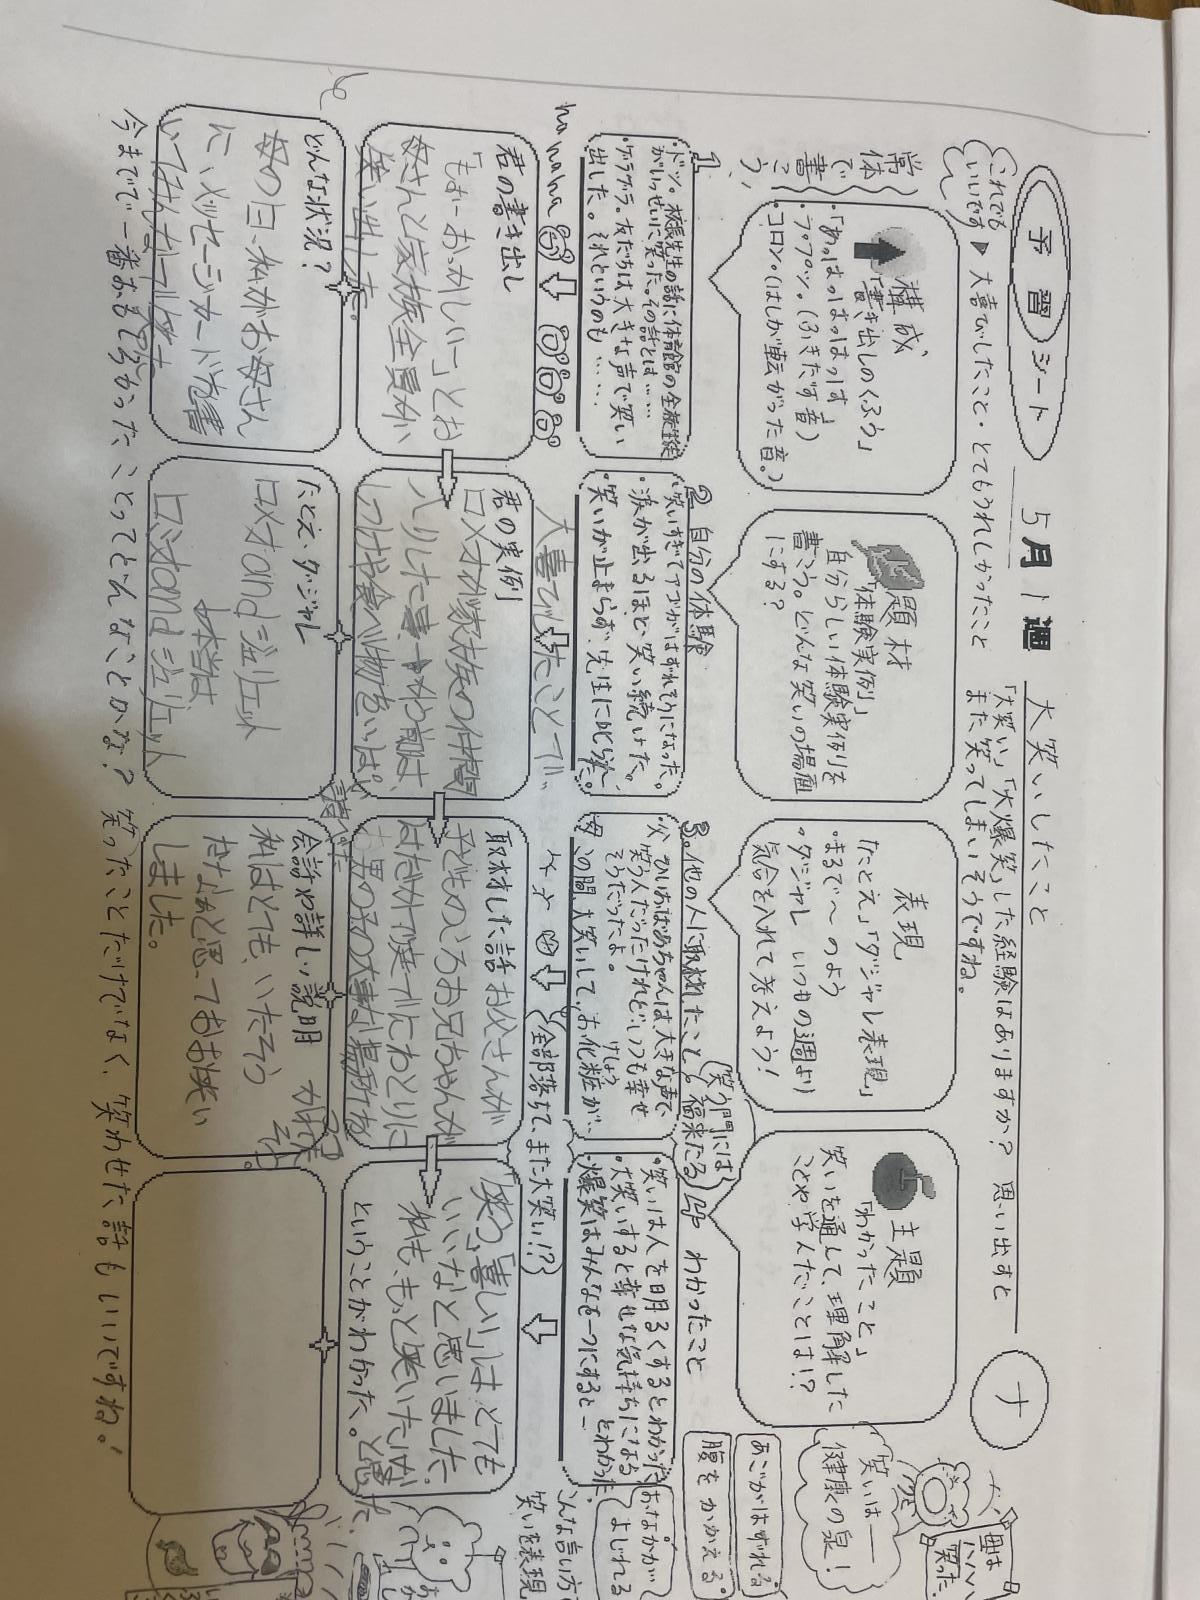 予習シート
５月１週
大笑いしたこと
ナ
これでも
いいです
▶大喜びしたこと・とてもうれしかったこと
「大笑い」「大爆笑」した経験はありますか？思い出すと
また笑ってしまいそうですね。
常体で書こう
構成
「書き出しのくふう」
・「あっはっはっはっ」
・ラ。プププッ。(ふきだす音)
・コロン。(はしが転がった音。)
題材
「体験実例」
自分らしい体験実例を
書こう。どんな笑いの場面
にする？
表現
「たとえ」「ダジャレ表現」
・まるで〜のよう
・ダジャレ いつもの3週より
気合を入れて考えよう！
主題
「わかったこと」
笑いを通して、理解した
ことや学んだことは!?
笑いは──
健康の泉！
1.
・ドッ。校長先生の話に体育館の全校生徒
がいっせいに笑った。その話とは……
・ゲラゲラ。友だちは大きな声で笑い
出した。それというのも……
2 自分の体験
・笑いすぎてアゴがはずれそうになった。
・涙が出るほど、笑い続けた。
・笑いが止まらず、先生に叱られた。
3。他の人に取材したこと
・父 ひいおばあちゃんは大きな声で
笑う人だったけれど、いつも幸せ
そうだったよ。
母 この間大笑いして、お化粧が、
けしょう
全部落ちて、また大笑い!?
笑う門には
福来たる
4 わかったこと
・笑いは人を明るくするとわかった
・大笑いすると幸せな気持ちになる
とわかった
・爆笑はみんなを一つにすると──
あごがはずれる
腹をかかえる
おなかが
よじれる
こんな言い方で
笑いを表現
hahaha
大喜びしたことで
君の書き出し
「もぉーおっかしい〜」とお
母さんと家族全員が
笑い出した。
君の実例
ロメオが家族の仲間
入りした事
取材した話 お父さんが
子どものころお兄ちゃんが
男の子の大事な場所を
笑う、「喜しい」は、とても
いいなと思いました。
私も、もっと笑いたいな
ということがわかった。
どんな状況？
母の日、私がお母さん
に、メッセージカードを書
いてみんなで
たとえ・ダジャレ
ロメオandジュリエット
本当は
ロミオandジュリエット
会話や詳しい説明
私はとても、いたそう
だなぁと思っておお笑い
しました。
今までで一番おもしろかったことってどんなことかな？ 笑ったことだけでなく、笑わせた話もいいですね！